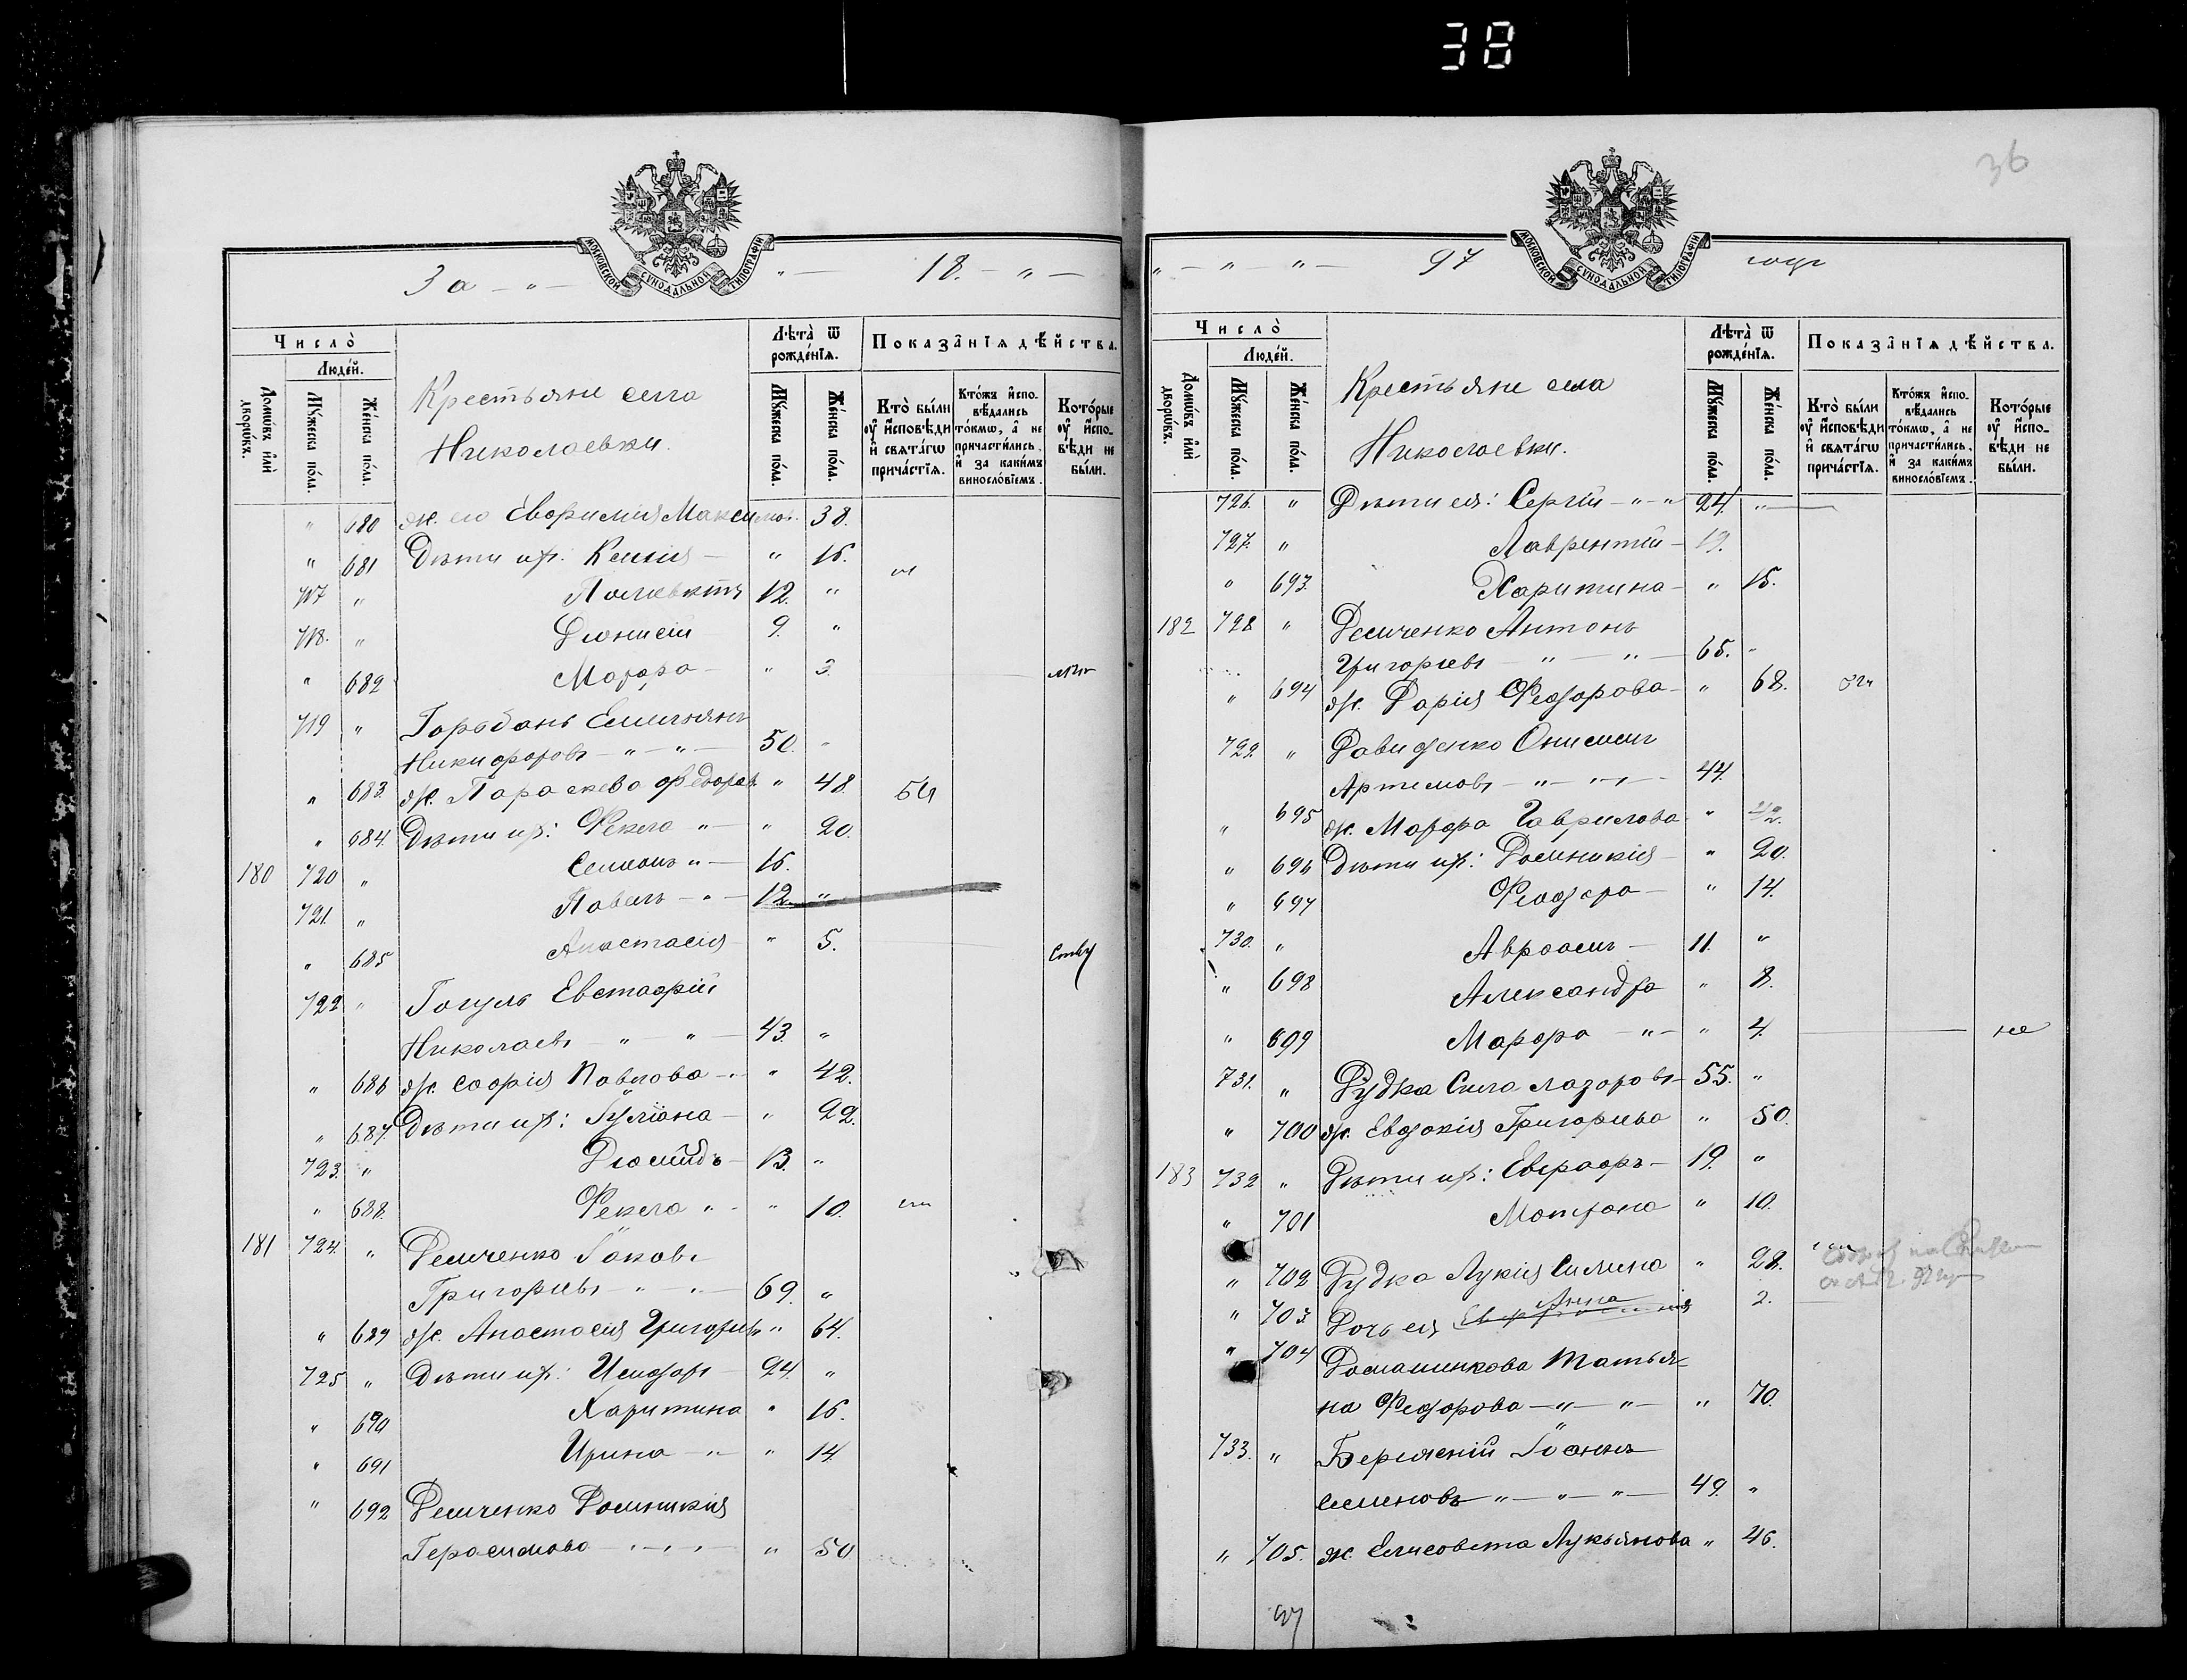 38
36
МОСКОВСКОЙ СѴНОДАЛЬНОЙ ТИПОГРАФІИ
За - " - " - 18. - " -
Число̀
Людей.
Домѡвъ и҆лѝ дворѡвъ.
Мꙋжеска пола.
Женска пола.
Крестьяне села
Николаевки.
Лѣта̀ ѿ рожденїѧ.
Мꙋжеска пола.
Женска пола.
Показанїѧ дѣйства.
Кто̀ были ᲂу҆ и҆сповѣди и҆ свѧтагѡ причастїѧ.
Ктожъ и҆сповѣдались токмѡ, а҆ не причастились, и҆ за какимъ винословїемъ.
Которые ᲂу҆ и҆сповѣди не были.
" 680 ж. его Евфимия Максимов. 38.
" 681 Дѣти их: Ксения - " 16.
717 " Полиевктъ 12. "
718. " Дионисий 9. "
" 682 Марфа - " 3.
719 " Горобань Емилиянъ
Никифоровъ - " - " - 50. "
" 683. ж. Параскева Федоров. " 48.
" 684. Дѣти их: Фекла " - " 20.
180 720 " Семионъ " - 16.
721. " Павелъ - " - 12. "
" 685 Анастасия - " 5.
722 " Гогуль Евстафий
Николаевъ " - " - 43. "
" 686 ж. София Павлова - " 42.
" 687. Дѣти их: Іулиана - " 22.
723. " Диомидъ - 13. "
" 688. Фекла " - " 10.
181 724. " Демченко Іаковъ
Григорьевъ - " - " - 69. "
" 689 ж. Анастасия Григорьев. " 64.
725 " Дѣти их: Исидоръ - 24. "
" 690 Харитина " 16.
" 691 Ирина - " - " 14.
" 692 Демченко Домникия
Герасимова - " - " - " 50
" - " - " - 97 года
Число̀
Людей.
Домѡвъ и҆лѝ дворѡвъ.
Мꙋжеска пола.
Женска пола.
Крестьяне села
Николаевки.
Лѣта̀ ѿ рожденїѧ.
Мꙋжеска пола.
Женска пола.
Показанїѧ дѣйства.
Кто̀ были ᲂу҆ и҆сповѣди и҆ свѧтагѡ причастїѧ.
Ктожъ и҆сповѣдались токмѡ, а҆ не причастились, и҆ за какимъ винословїемъ.
Которые ᲂу҆ и҆сповѣди не были.
726. " Дѣти ея: Сергий - " - " 24. "
727. " Лаврентий - 19.
" 693. Харитина - " 15.
182 728 " Демченко Антонъ
Григорьевъ - " - " - 65. "
" 694 ж. Дария Федорова - " 68.
729. " Давиденко Онисимъ
Артемовъ - " - " - 44.
" 695 ж. Марфа Гаврилова " 42.
" 696 Дѣти их: Домникия - " 20.
" 697 Феодора - " 14.
730. " Авраамъ - 11. "
" 698 Александра " 8.
" 699 Марфа - " - " 4.
731. " Дудка Сила Лазоровъ - 55. "
" 700 ж. Евдокия Григорьева " 50.
183 732 " Дѣти их: Евграфъ - 19. "
" 701 Матрона " 10.
" 702 Дудка Лукия Силина " 28.
" 703 Дочь ея Анна 2.
" 704 Домашинкова Татья-
на Федорова - " - " - " 70.
733. " Бережний Іоаннъ
Семеновъ " - " - " - 49. "
" 705. ж. Елисовета Лукьянова " 46.
97